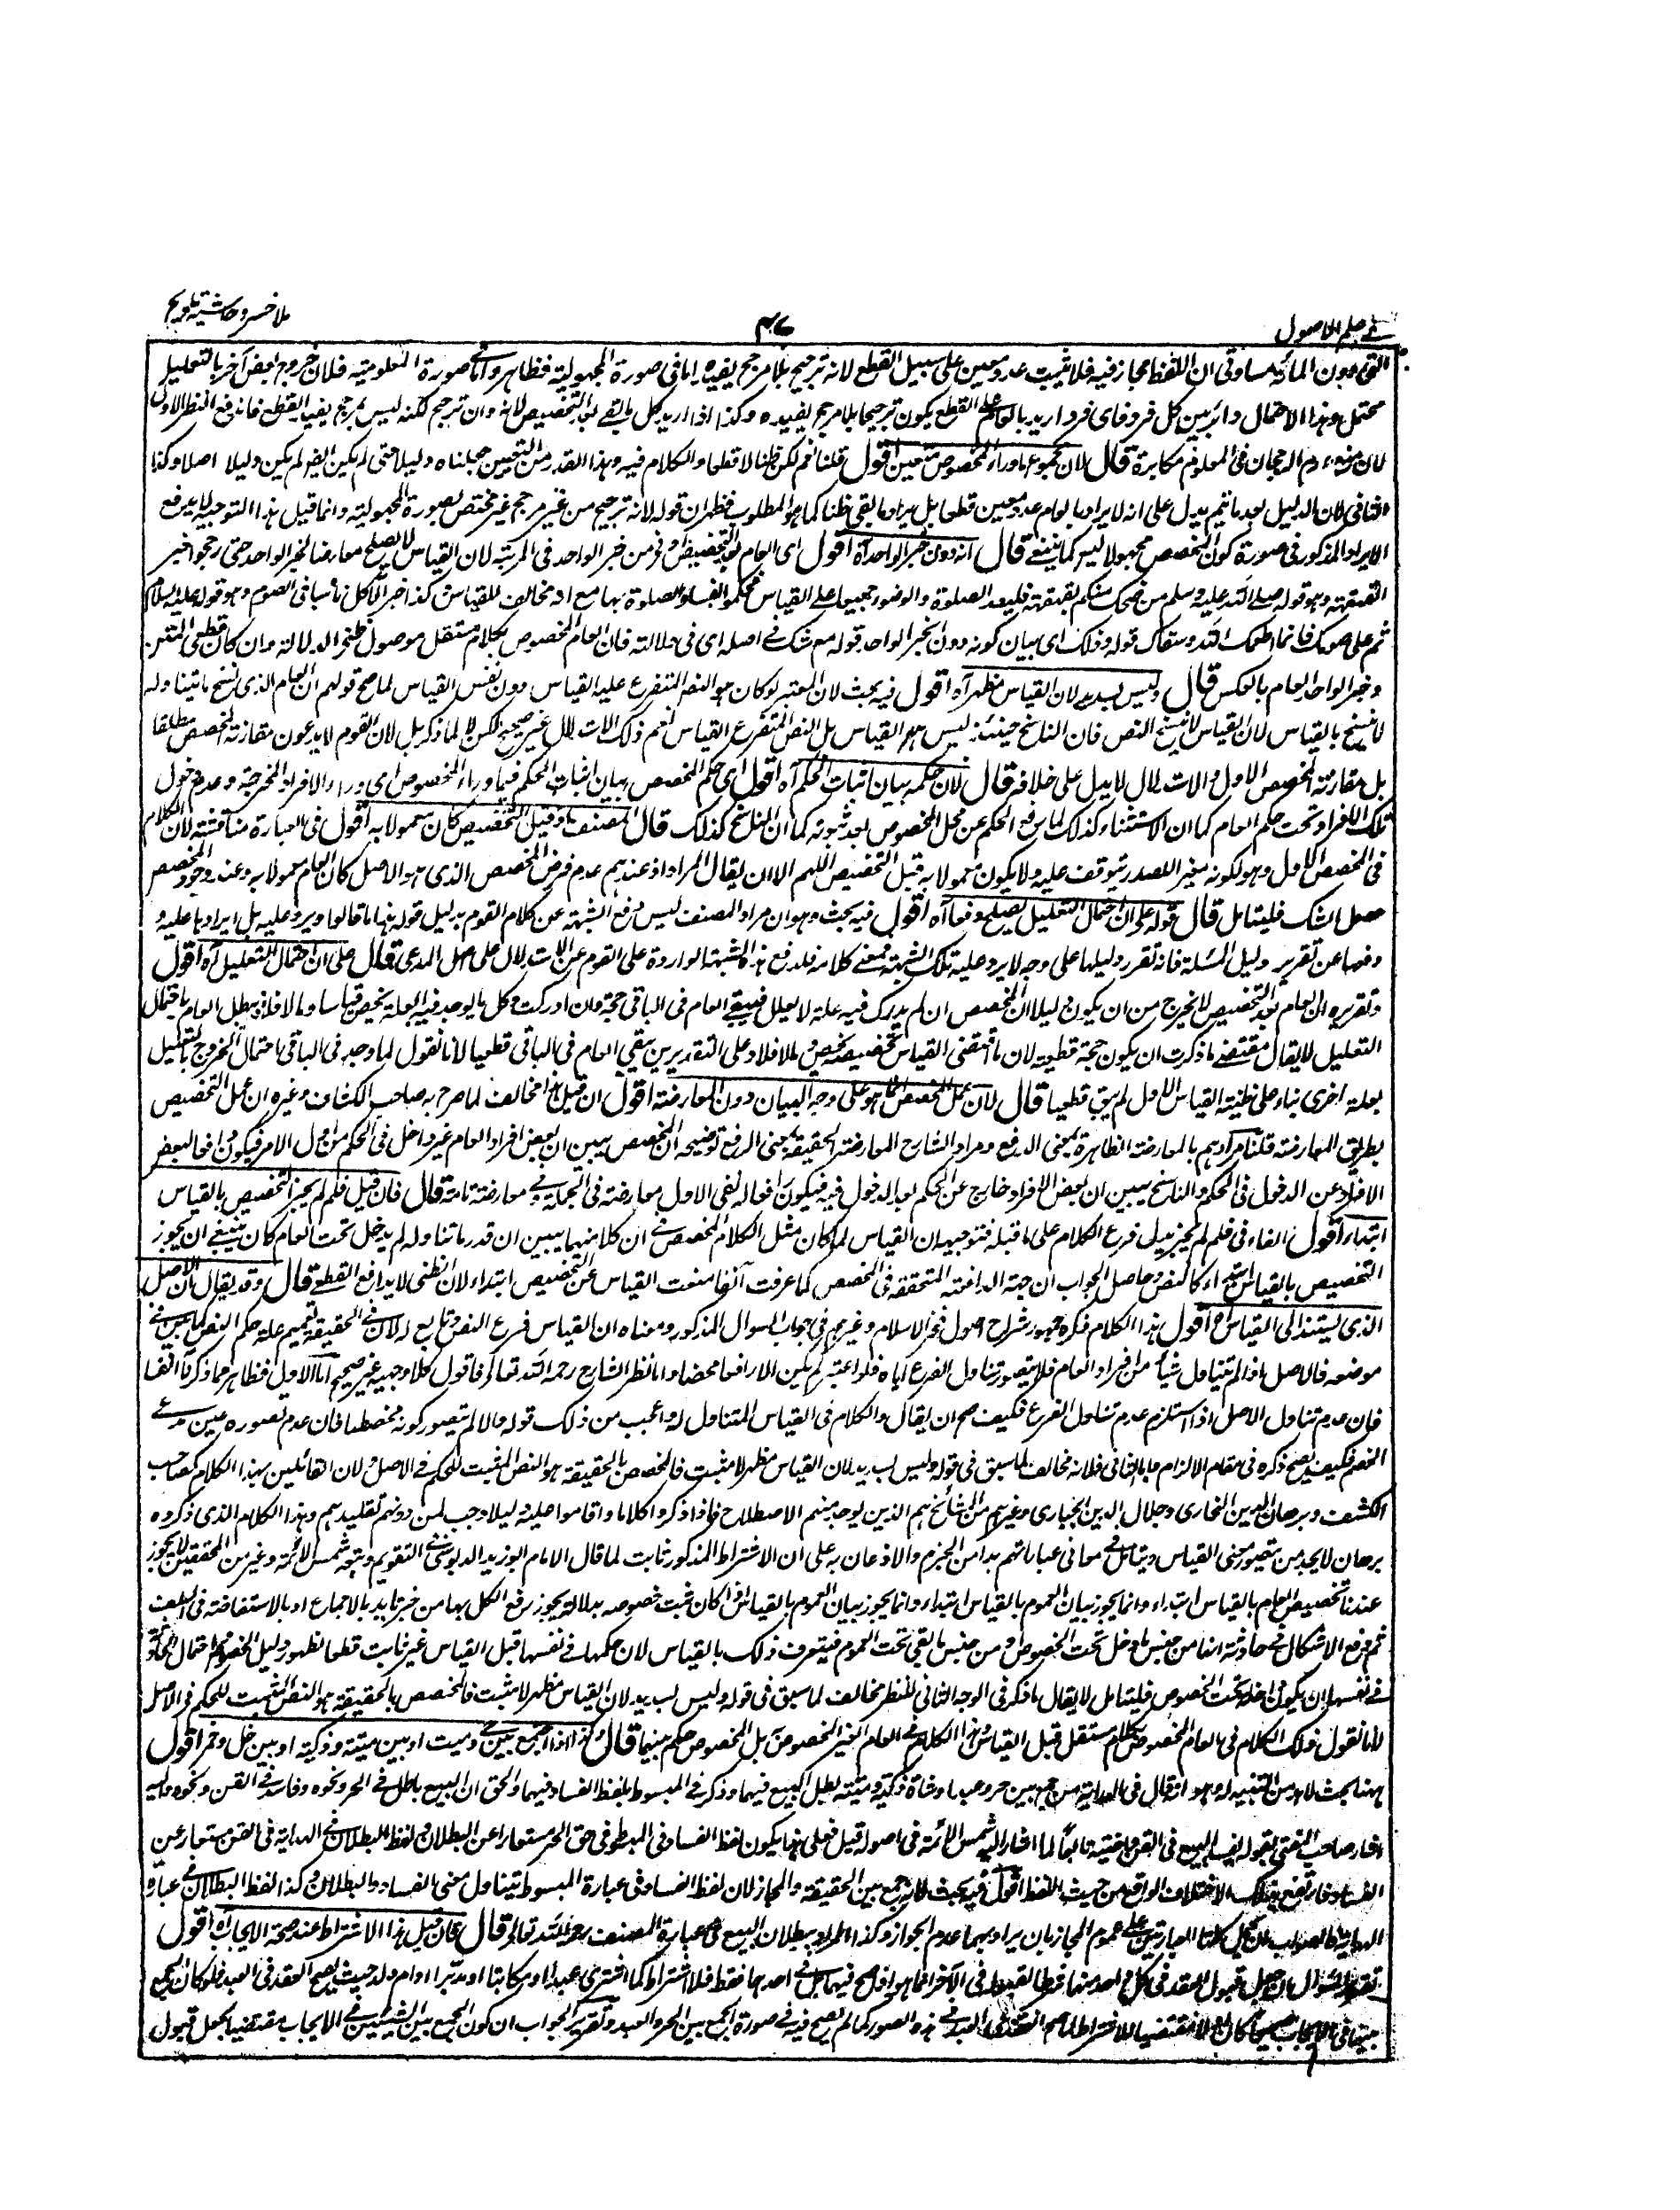 في علم الاصول
٤٧
ملا خسرو حاشية تلويح
التي دون المائة مساو في ان اللفظ مجاز فيه فلا يثبت عدد معين على سبيل القطع لانه ترجيح بلا مرجح يفيده اما في صورة المجهولية فظاهر واما في صورة المعلومية فلان خروج بعض آخر بالتعليل
محتمل وهذا الاحتمال دائر بين كل فرد فاى فرد اريد بالعام على القطع يكون ترجيحا بلا مرجح يفيده وكذا اذا اريد كل ما بقي بعد التخصيص لانه وان ترجح لكنه ليس بمرجح يفيد القطع فاندفع النظر الاول
لان منع عدم الرجحان في المعلوم مكابرة قال لان مجموع ما وراء المخصوص متعين اقول قلنا نعم لكن ظنا لا قطعا والكلام فيه وهذا القدر من التعيين جعلناه دليلا حتى لم يكن الغير لم يكن دليلا اصلا وكذا
الثاني لان الدليل بعد ما تم يدل على انه لا يراد بالعام عدد معين قطعا بل يراد ما بقي ظنا كما هو المطلوب فظهر ان قوله لانه ترجيح من غير مرجح غير مختص بصورة المجهولية وانما قيل هذا التوجيه لا يدفع
الايراد المذكور في صورة كون المخصص مجهولا ليس كما ينبغي قال انه دون خبر الواحد آه اقول اى العام بعد التخصيص ادنى من خبر الواحد في المرتبة لان القياس لا يصلح معارضا لخبر الواحد حتى رجحوا خبر
القهقهة وهو قوله صلى الله عليه وسلم من ضحك منكم بقهقهة فليعد الصلوة والوضوء جميعا على القياس فحكموا بفساد الصلوة بها مع انه مخالف للقياس كذا خبر الآكل ناسيا في الصوم وهو قوله عليه السلام
تم على صومك فانما اطعمك الله وسقاك قوله وذلك اى بيان كونه دون الخبر الواحد قوله مع شك في اصله اى في دلالته فان العام المخصوص بكلام مستقل موصول ظني الدلالة وان كان قطعي المتن
وخبر الواحد العام بالعكس قال وليس بسديد لان القياس مظهر آه اقول فيه بحث لان المعتبر لو كان هو النص المتفرع عليه القياس دون نفس القياس لما صح قولهم ان العام الذى نسخ ما يتناوله
لا ينسخ بالقياس لان القياس لا ينسخ النص فان الناسخ حينئذ ليس هو القياس بل النص المتفرع القياس نعم ذلك الاستدلال غير صحيح لكن لا لما ذكر بل لان القوم لا يدعون مقارنة المخصص مطلقا
بل مقارنة المخصص الاول والاستدلال لا يدل على خلافه قال لان حكمه بيان اثبات الحكم آه اقول اى حكم المخصص بيان اثبات الحكم فيما وراء المخصوص اى وراء الافراد المخرجة وعدم دخول
تلك الافراد تحت حكم العام كما ان الاستثناء كذلك لا رفع الحكم عن محل المخصوص بعد ثبوته كما ان الناسخ كذلك قال المصنف ما قبل التخصيص كان معمولا به اقول في العبارة مناقشة لان الكلام
في المخصص الاول وهو لكونه مغير اللصدر يتوقف عليه ولا يكون معمولا به قبل التخصيص اللهم الا ان يقال المراد اذ عندهم عدم فرض المخصص الذى هو الاصل كان العام معمولا به وعند وجود المخصص
حصل الشك فليتامل قال قوله على ان احتمال التعليل يصلح دفعا آه اقول فيه بحث وهو ان مراد المصنف ليس دفع الشبهة عن كلام القوم بدليل قوله هنا ما قالوا ويرد عليه بل ايرادها عليه و
دفعها عن تقرير دليل المسئلة فانه تقرر دليلها على وجه لا يرد عليه تلك الشبهة فمعنى كلامه فلدفع هذه الشبهة الواردة على القوم عن الاستدلال على اصل المدعى قال على ان احتمال التعليل آه اقول
وتقريره ان العام بعد التخصيص لا يخرج من ان يكون دليلا لان المخصص ان لم يدرك فيه علة لا يعلل فيبقى العام في الباقي حجة وان ادركت فكل ما يوجد فيه العلة يخص قياسا وما لا فلا فلا يبطل العام باحتمال
التعليل لا يقال مقتضى ما ذكرت ان يكون حجة قطعية لان ما اقتضى القياس تخصيصه يخص وما لا فلا وعلى التقديرين يبقى العام في الباقي قطعيا لانا نقول لما وجد في الباقي احتمال الخروج بالتعليل
بعلة اخرى بناء على ظنية القياس الاول لم يبق قطعيا قال لان عمل المخصص انما هو على وجه البيان دون المعارضة اقول ان قيل هذا مخالف لما صرح به صاحب الكشف وغيره ان عمل التخصيص
بطريق المعارضة قلنا مرادهم بالمعارضة الظاهرة بمعنى الدفع ومراد الشارح المعارضة الحقيقية بمعنى الرفع توضيحه ان المخصص يبين ان بعض افراد العام غير داخل في الحكم من اول الامر فيكون دافعا لبعض
الافراد عن الدخول في الحكم والناسخ يبين ان بعض الافراد خارج عن الحكم بعد الدخول فيه فيكون رافعا له ففى الاول معارضة في الجملة وفي معارضة تامة قال فان قيل فلم لم يجز التخصيص بالقياس
ابتداء اقول الفاء في فلم لم يجز يدل فرع الكلام على ما قبله فتوجيهه ان القياس لما كان مثل الكلام المخصص في ان كلا منهما يبين ان قدر ما تناوله لم يدخل تحت العام كان ينبغي ان يجوز
التخصيص بالقياس ابتداء كالنص وحاصل الجواب ان جهة الدافعة المتحققة في المخصص كما عرفت آنفا منعت القياس عن التخصيص ابتداء لان الظني لا يدافع القطع قال وقد يقال بان الاصل
الذى يستند الى القياس آه اقول هذا الكلام ذكره جمهور شراح اصول فخر الاسلام وغيرهم في جواب السوال المذكور ومعناه ان القياس فرع النص وتابع له لان في الحقيقة تعميم علة حكم النص كما عين في
موضعه فالاصل اذا لم يتناول شيأ من افراد العام فلا يتصور تناول الفرع اياه فلو اعتبر لم يكن الا رافعا محضا واما نظر الشارح رحمه الله تعالى فاقول كلا وجهيه غير صحيح اما الاول فظاهر مما ذكرنا آنفا
فان عدم تناول الاصل اذا استلزم عدم تناول الفرع فكيف صح ان يقال والكلام في القياس المتناول له واعجب من ذلك قوله والا لم يتصور كونه مخصصا فان عدم تصوره عين مدعى
الخصم فكيف يصح ذكره في مقام الالزام واما الثاني فلانه مخالف لما سبق في قوله وليس بسديد لان القياس مظهر لا مثبت فالمخصص بالحقيقة هو النص المثبت للحكم في الاصل ولان القائلين بهذا الكلام كصاحب
الكشف وبرهان الدين البخارى وجلال الدين الخبازى وغيرهم من المشائخ هم الذين يوجد منهم الاصطلاح فاذا ذكروا كلاما واقاموا عليه دليلا وجب لمن دونهم تقليدهم وهذا الكلام الذى ذكروه
برهان لا يجد من يتصور معنى القياس ويتامل في معاني عباراتهم بدا من الجزم والاذعان به على ان الاشتراط المذكور ثابت لما قال الامام ابو زيد الدبوسي في التقويم وتبعه شمس الائمة وغيره من المحققين لا يجوز
عندنا تخصيص العام بالقياس ابتداء وانما يجوز بيان العموم بالقياس ابتداء وانما يجوز بيان العموم بالقياس اذا كان ثبت خصوصه بدلالة يجوز رفع الكل بها من خبر تأيد بالاجماع او بالاستفاضة في السلف
ثم وقع الاشكال في حادثة انها من جنس ما دخل تحت الخصوص او من جنس ما بقي تحت العموم فيتعرف ذلك بالقياس لان حكمها في نفسها قبل القياس غير ثابت قطعا لظهور دليل الخصوص واحتمال الحادثة
في نفسها ان يكون داخلة تحت الخصوص فليتامل لا يقال ما ذكر في الوجه الثاني للنظر مخالف لما سبق في قوله وليس بسديد لان القياس مظهر لا مثبت فالمخصص بالحقيقة هو النص المثبت للحكم في الاصل
لانا نقول ذلك الكلام في العام المخصوص بكلام مستقل قبل القياس وهذا الكلام في العام الغير المخصوص بل المخصوص حكم بينهما قال وكذا اذا جمع بين حى وميت او بين ميتة وذكية او بين خل وخمر اقول
ههنا بحث لا بد من التنبيه له وهو انه قال في الهداية من جمع بين حر وعبد او شاة ذكية وميتة بطل البيع فيهما وذكر في المبسوط بلفظ الفساد فيهما والحق ان البيع باطل في الحر ونحوه وفاسد في القن ونحوه واليه
اشار صاحب المغني بقوله يفسد البيع في القن وبقيته تابعا لما اشار اليه شمس الائمة في اصوله قيل فعلى هذا يكون لفظ الفساد في المبسوط في حق الحر مستعارا عن البطلان ولفظ البطلان في الهداية في القن مستعار عن
الفساد فارتفع بذلك الاختلاف الواقع من حيث اللفظ اقول فيه بحث لانه جمع بين الحقيقة والمجاز لان لفظ الفساد في عبارة المبسوط يتناول معنى الفساد والبطلان وكذا لفظ البطلان في عبارة
الهداية فالصواب ان يحمل كلتا العبارتين على عموم المجاز بان يراد بهما عدم الجواز وكذا المراد ببطلان البيع في عبارة المصنف رحمه الله تعالى قال فان قيل هذا الاشتراط عند صحة الايجاب آه اقول
تقرير السؤال ان جعل قبول العقد في كل واحد منهما شرطا لقبوله في الآخر انما هو اذا صح فيهما بل في احدهما فقط فلا اشتراط كما اشترى عبدا او مكاتبا او مدبرا او ام ولد حيث يصح العقد في العبد فلو كان الجمع
بينهما في الايجاب صحيحا كان او لا مقتضيا للاشتراط لما صح العقد في العبد في هذه الصور كما لم يصح فيه في صورة الجمع بين الحر والعبد وتقرير الجواب ان كون الجمع بين الشيئين في الايجاب مقتضيا لجعل قبول